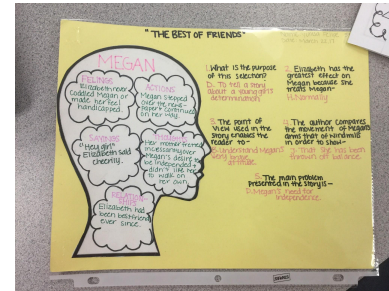 "THE BEST OF FRIENDS"
MEGAN
FEELINGS
Elizabeth never
coddled Megan or
made her feel
handicapped.
ACTIONS
Megan stepped
over the news-
paper & continued
on her way.
SAYINGS
"Hey girl"
Elizabeth said
cheerily.
Her mother fretted
incessantly over
Megan's desire to
be independent &
didn't like her
to walk on
her own.
RELATION-
SHIPS
Elizabeth had
been best friend
ever since.
1. What is the purpose
of this selection?
D. To tell a story
about a young girl's
determination
2. Elizabeth has the
greatest effect on
Megan because she
treats Megan-
H. Normally
3. The point of
view used in the
story enables the
reader to-
B. Understand Megan's
attitude.
4. The author compares
the movement of Megan's
arms that of windmills
in order to show-
That she has been
thrown off balance.
5. The main problem
presented in the story is-
D. Megan's need for
independence.